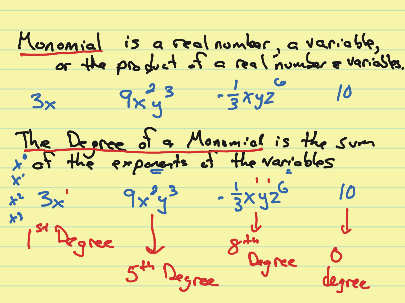 Monomial is a real number, a variable,
or the product of a real number & variables.
3x 9x²y³ -1/3xyz⁶ 10
The Degree of a Monomial is the sum
of the exponents of the variables
x⁰
x¹
x²
x³
3x¹ 9x²y³ -1/3x¹y¹z⁶ 10
1st Degree
5th Degree
8th Degree
0 degree